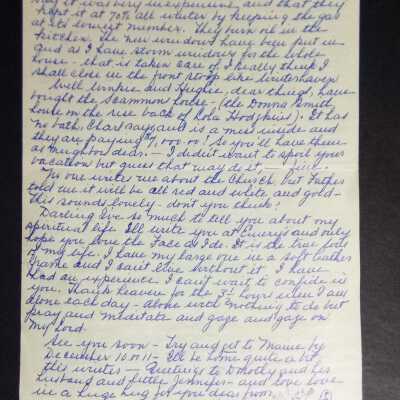 it was very inexpensive and that they
kept it at 70% all winter by keeping the gas
at its lowest number. They burn oil in the
kitchen. The new windows have been put in
and as I have storm windows for the whole
house - that is taken care of. I really think I
shall close in the front stoop like Winterhaven
Well Winnie and Hughie, dear things, have
bought the Scammon house - (the Donna Smith
house on the rise back of Lola Hodgkins). It has
no bath, Charl says and is a mess inside and
they are paying $7,000.00! So you'll have them
as neighbors dear. — I didn't want to spoil your
vacation but guess that may do it —
No one writes me about the Church, but Father
told me it will be all red and white and gold -
this sounds lovely - don't you think?
Darling Eve so much to tell you about my
spiritual life. I'll write you at Emery's and only
hope you love the Face as I do. It is the true focus
of my life. I have my large one in a soft leather
frame and I can't live without it. I have
had an experience I can't wait to confide in
you. Thank heaven for the 3½ hours when I am
alone each day - alone with nothing to do but
pray and meditate and gaze and gaze on
My Lord.
See you soon - Try and get to Maine by
December 10 or 11 - I'll be home quite a bit
this winter - Greetings to Dorothy and her
husband and little Jennifer - and love love
in a huge hug for you dear from